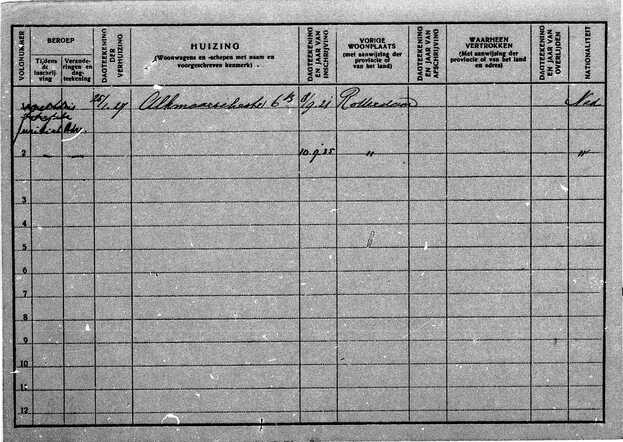 VOLGNUMMER
BEROEP
Tijdens de inschrijving
Verande-ringen en dag-teekening
DAGTEEKENING DER VERHUIZING
HUIZING
(Woonwagens en -schepen met naam en
voorgeschreven kenmerk)
DAGTEEKENING EN JAAR VAN INSCHRIJVING
VORIGE
WOONPLAATS
(met aanwijzing der
provincie of
van het land)
DAGTEEKENING EN JAAR VAN AFSCHRIJVING
WAARHEEN
VERTROKKEN
(Met aanwijzing der
provincie of van het land
en adres)
DAGTEEKENING EN JAAR VAN OVERLIJDEN
NATIONALITEIT
25/1.27 6 9/9.21 Rotterdam Ned
2 10.9.25 " "
3
4
5
6
7
8
9
10
11
12